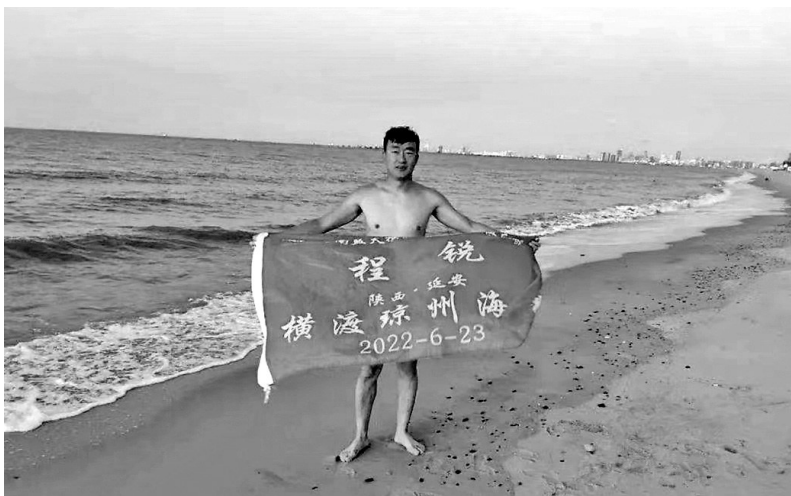 程 锐
陕西·延安
横渡琼州海
2022-6-23